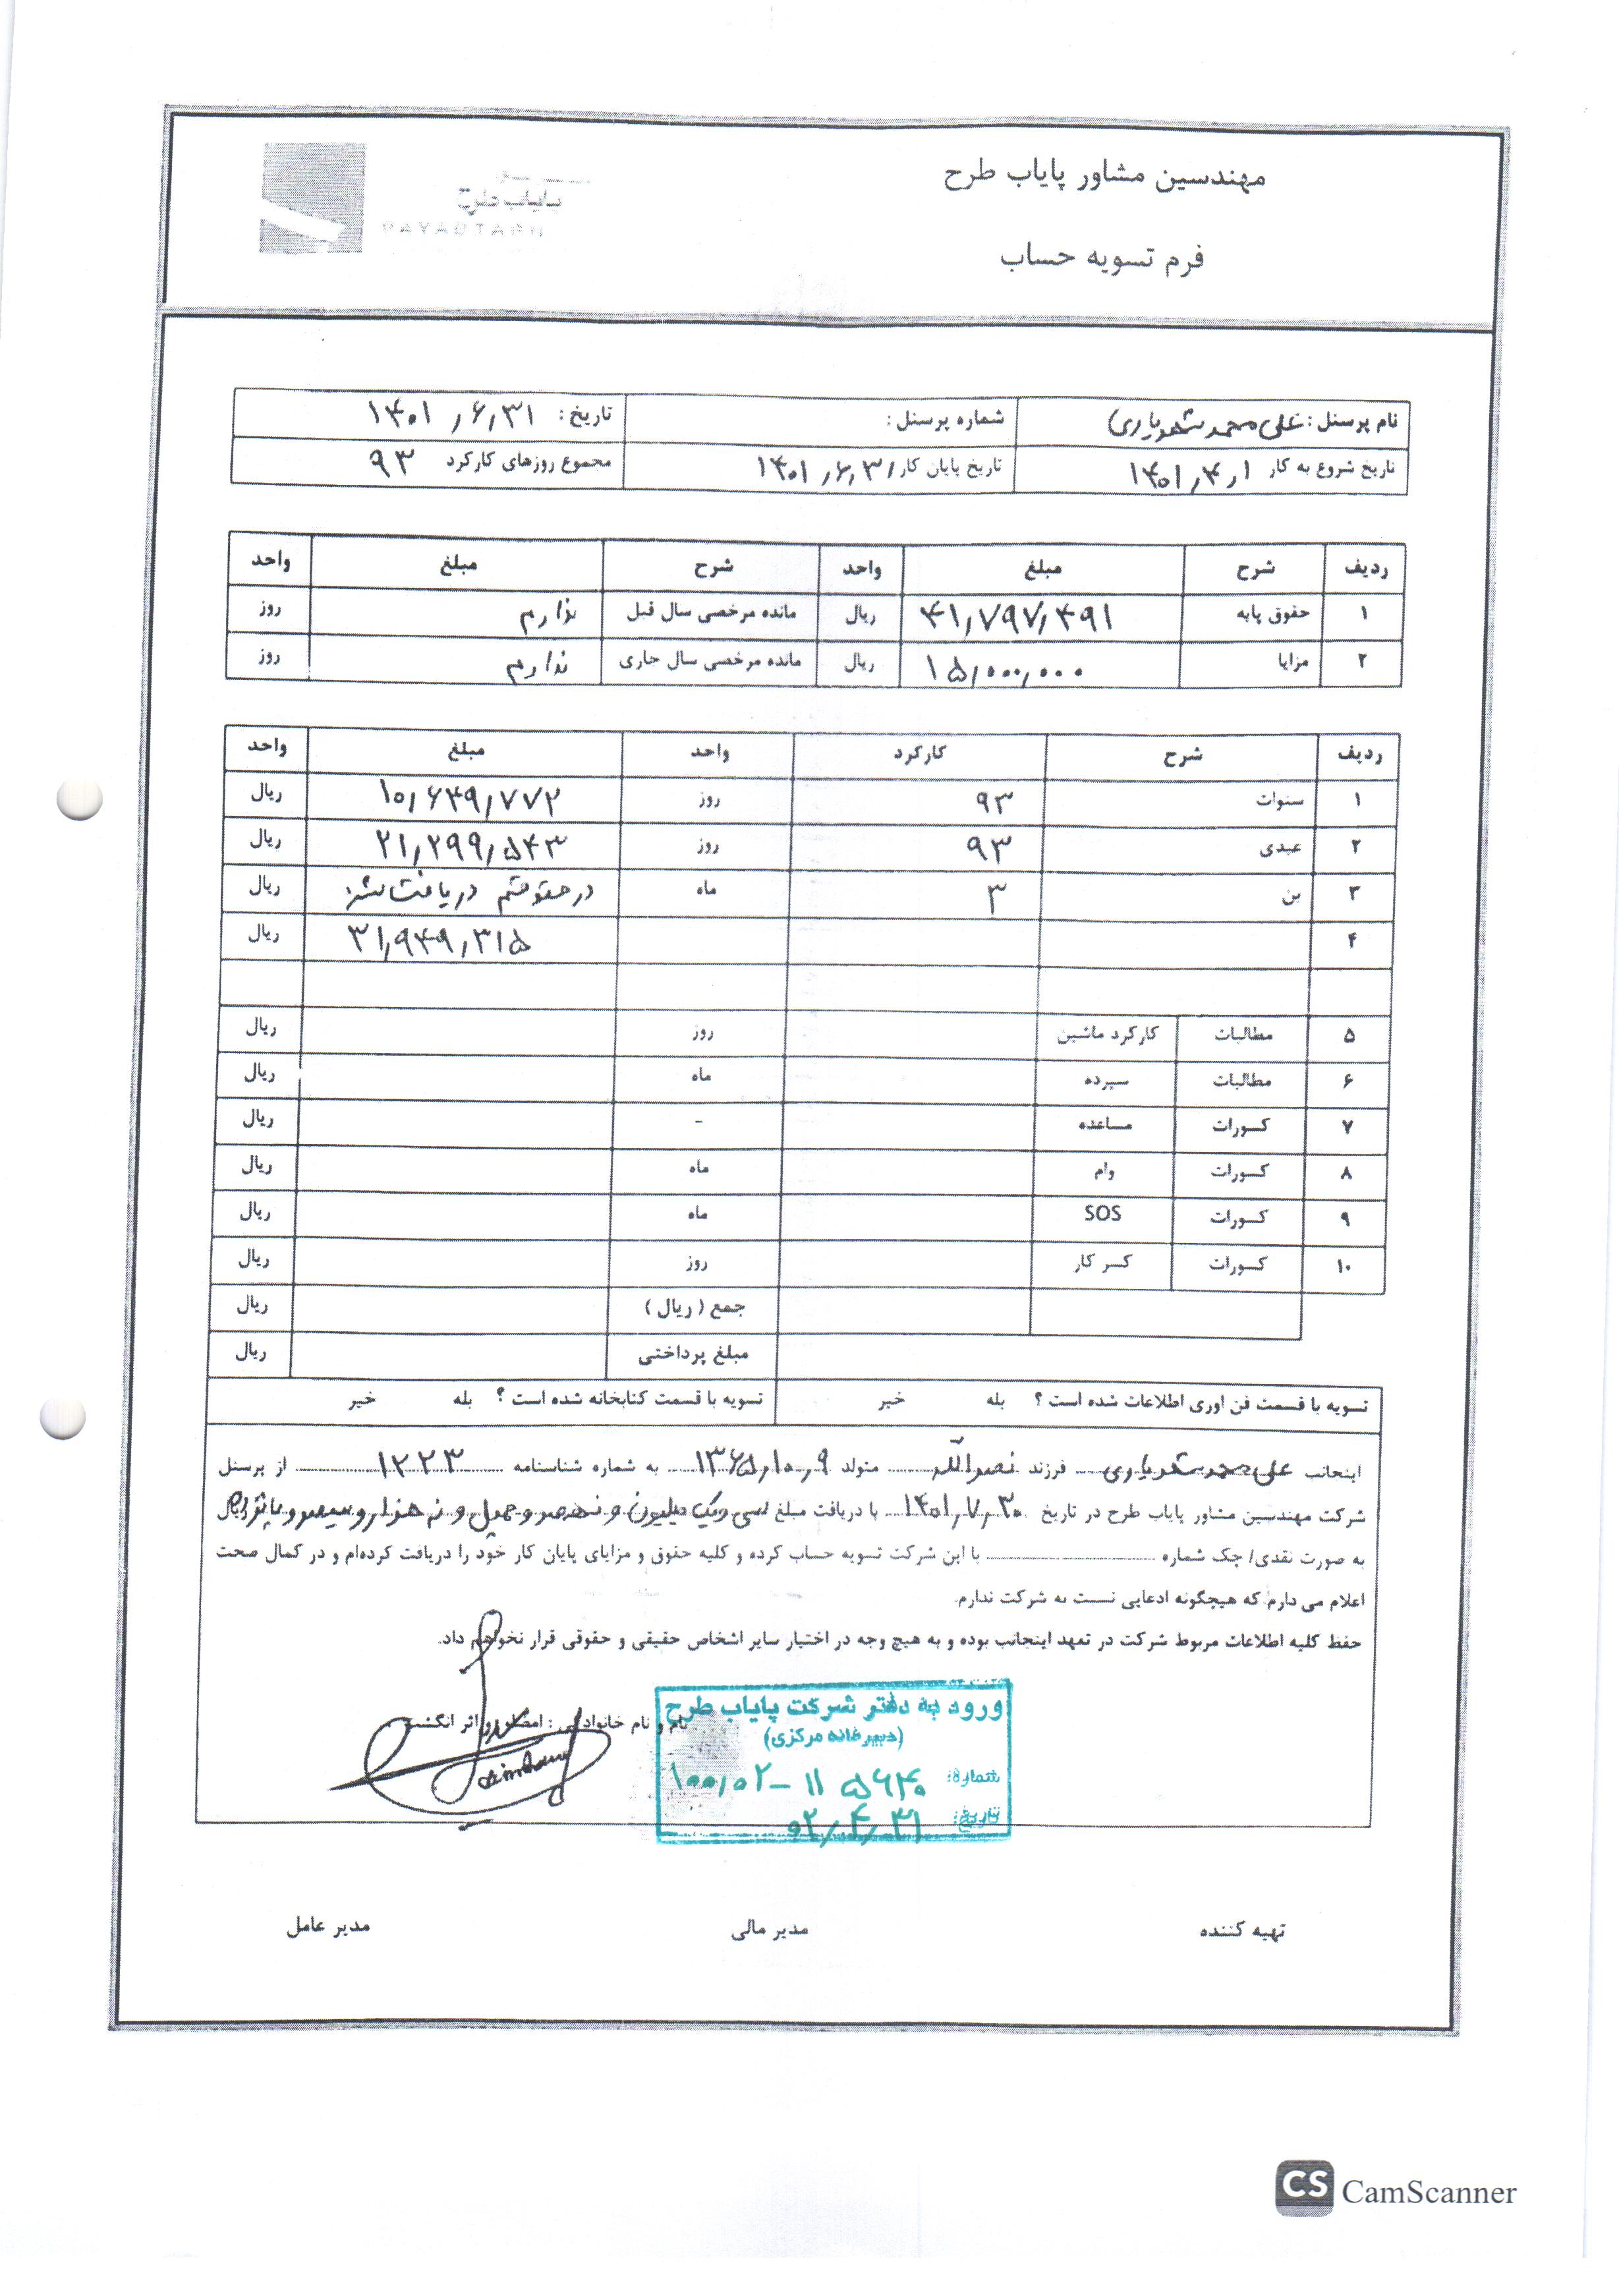 مهندسین مشاور پایاب طرح
فرم تسویه حساب
نام پرسنل : علی محمد شهریاری شماره پرسنل : تاریخ : ۱۴۰۱,۶,۳۱
تاریخ شروع به کار ۱۴۰۱,۴,۱ تاریخ پایان کار ۱۴۰۱,۶,۳۱ مجموع روزهای کارکرد ۹۳
ردیف شرح مبلغ واحد شرح مبلغ واحد
۱ حقوق پایه ۴۱,۷۹۷,۴۹۱ ریال مانده مرخصی سال قبل ندارم روز
۲ مزایا ۱۵,۰۰۰,۰۰۰ ریال مانده مرخصی سال جاری ندارم روز
ردیف شرح کارکرد واحد مبلغ واحد
۱ سنوات ۹۳ روز ۱۰,۶۴۹,۷۷۲ ریال
۲ عیدی ۹۳ روز ۲۱,۲۹۹,۵۴۳ ریال
۳ بن ۳ ماه در حقوقم دریافت شد. ریال
۴ ۳۱,۹۴۹,۳۱۵ ریال
۵ مطالبات کارکرد ماشین روز ریال
۶ مطالبات سپرده ماه ریال
۷ کسورات مساعده - ریال
۸ کسورات وام ماه ریال
۹ کسورات SOS ماه ریال
۱۰ کسورات کسر کار روز ریال
جمع ( ریال ) ریال
مبلغ پرداختی ریال
تسویه با قسمت فن اوری اطلاعات شده است ؟ بله خیر تسویه با قسمت کتابخانه شده است ؟ بله خیر
اینجانب علی محمد شهریاری فرزند نصرالله متولد ۱۳۶۵,۱۰,۹ به شماره شناسنامه ۱۲۲۳ از پرسنل
شرکت مهندسین مشاور پایاب طرح در تاریخ ۱۴۰۱,۷,۳۰ با دریافت مبلغ سی و یک میلیون و نهصد و چهل و نه هزار و سیصد و پانزده ریال
به صورت نقدی/ چک شماره با این شرکت تسویه حساب کرده و کلیه حقوق و مزایای پایان کار خود را دریافت کرده‌ام و در کمال صحت
اعلام می دارم که هیچگونه ادعایی نسبت به شرکت ندارم.
حفظ کلیه اطلاعات مربوط شرکت در تعهد اینجانب بوده و به هیچ وجه در اختیار سایر اشخاص حقیقی و حقوقی قرار نخواهم داد.
نام و نام خانوادگی : امضا و اثر انگشت
ورود به دفتر شرکت پایاب طرح
(دبیرخانه مرکزی)
شماره: ۱۰۰,۰۲-۱۱ ۵۶۴۰
تاریخ: ۰۲,۴,۳۱
تهیه کننده مدیر مالی مدیر عامل
CS CamScanner